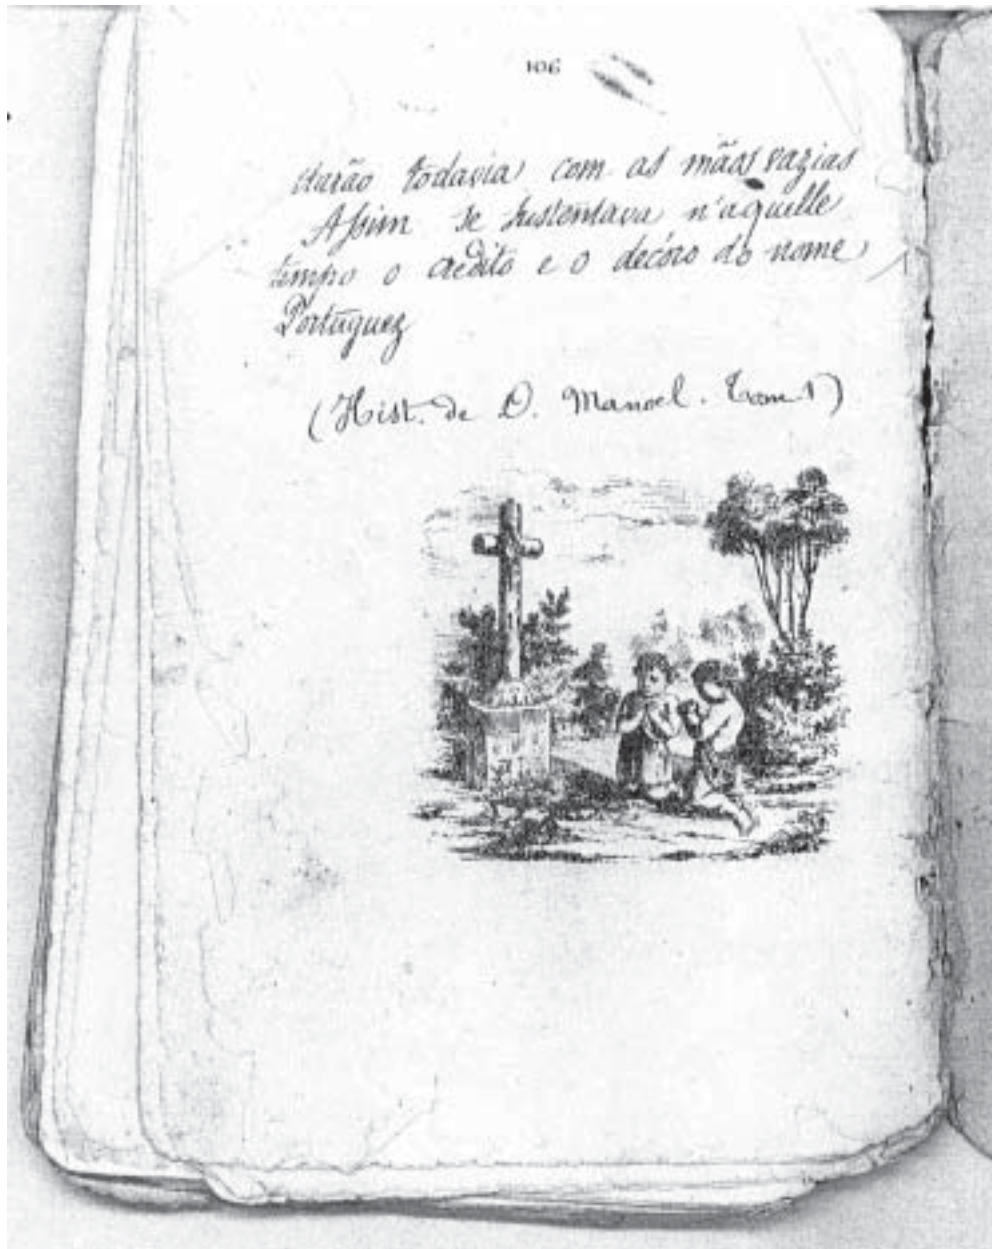 106
todavia com as mãos vazias
Assim se sustentava n'aquelle
tempo o credito e o decóro do nome
Portuguez
(Hist. de D. Manoel. Tom. 1)